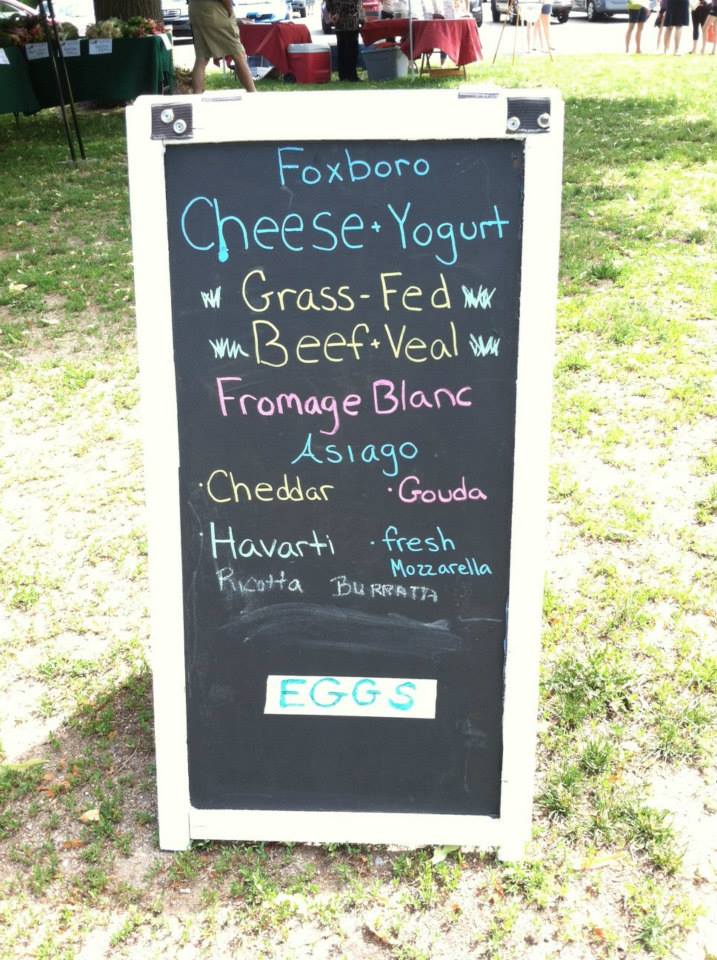 Foxboro
Cheese + Yogurt
Grass-Fed
Beef + Veal
Fromage Blanc
Asiago
· Cheddar · Gouda
· Havarti · fresh
Mozzarella
Ricotta BURRATA
EGGS